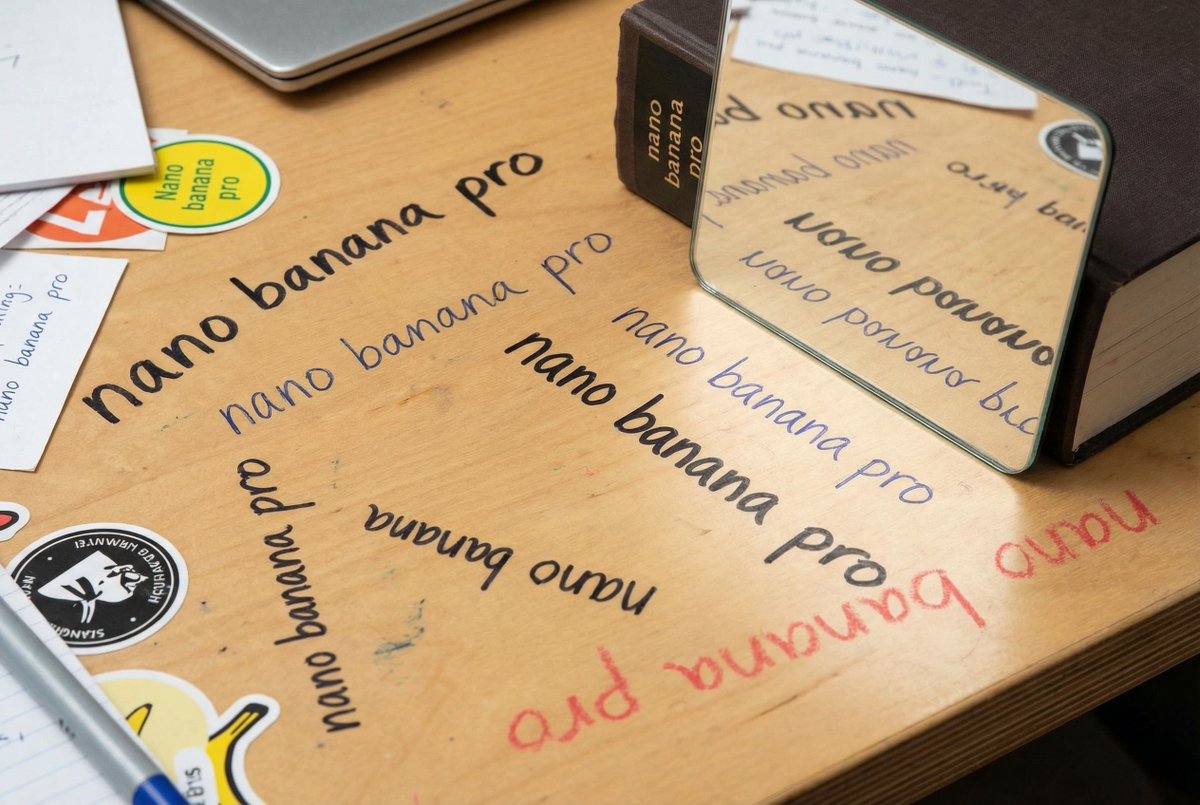 nano
banana
pro
Nano
banana
pro
nano banana pro
nano banana pro
nano banana pro
nano banana pro
nano banana pro
nano banana
nano banana pro
nano banana pro
nano banana
nano banana
nano banana
nano banana
nano banana